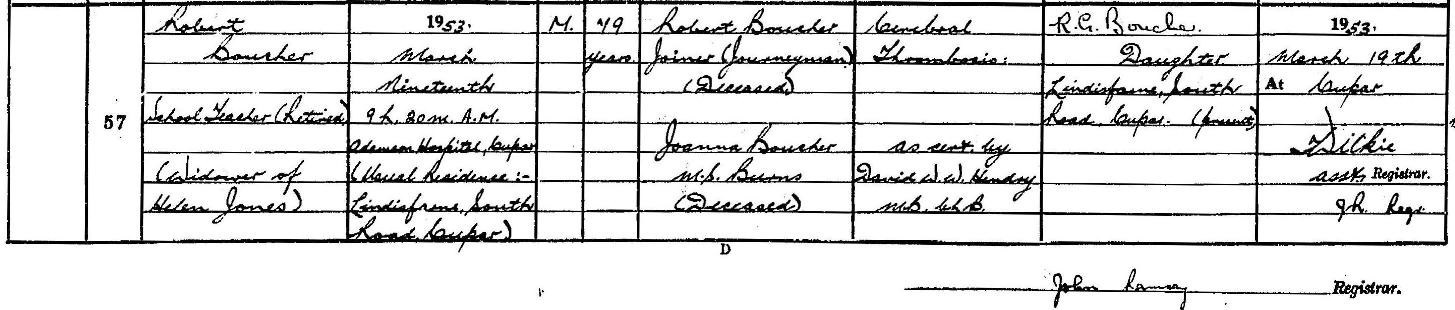 57
Robert
Bousher
School Teacher (Retired)
(Widower of
Helen Jones)
1953.
March
Nineteenth
9 h. 20 m. A.M.
Adamson Hospital, Cupar
(Usual Residence :-
Lindisfarne, South
Road, Cupar)
M.
79
years.
Robert Bousher
Joiner (Journeyman)
(Deceased)
Joanna Bousher
M.S. Burns
(Deceased)
Cerebral
Thrombosis:
as cert. by
David W. W. Hendry
M.B. Ch.B.
R.G.
Daughter
Lindisfarne, South
Road, Cupar. (present)
1953.
March 19th
At Cupar
Wilkie
asst. Registrar.
D
John Ramsay Registrar.